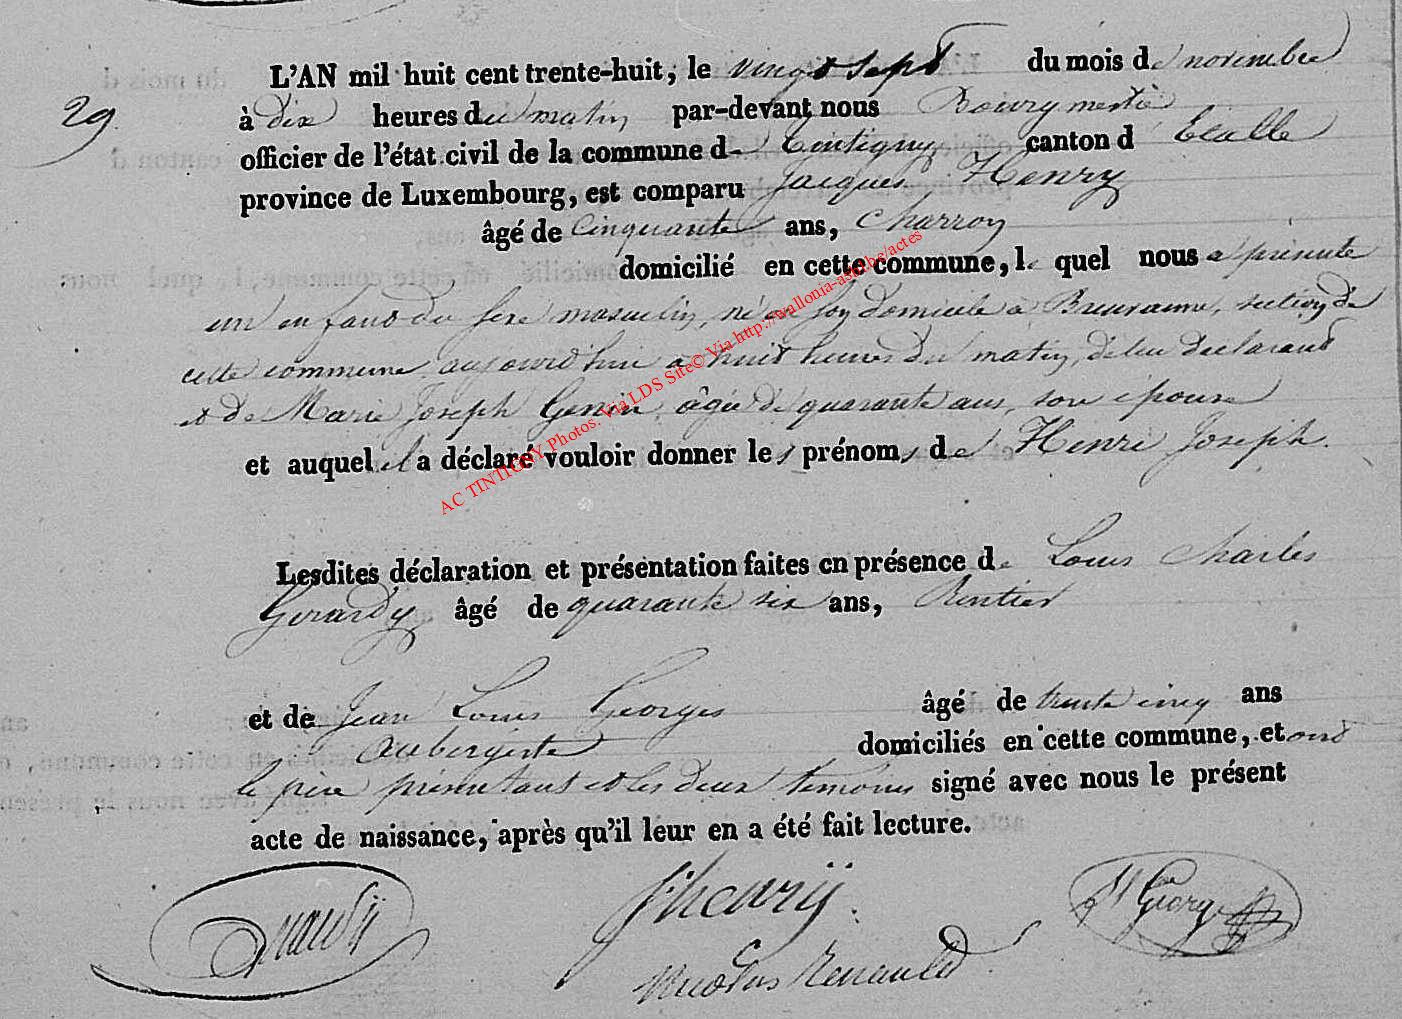 29.
L'AN mil huit cent trente-huit, le vingt sept du mois de novembre
à dix heures du matin par-devant nous Bourgmestre
officier de l'état civil de la commune de Tintigny, canton d'Etalle
province de Luxembourg, est comparu Jacques Henry
âgé de Cinquante ans, Charron
domicilié en cette commune, le quel nous a présenté
un enfant du sexe masculin, né en son domicile à Breuvanne, section de
cette commune aujourd'hui à huit heures du matin, de lui déclarant
et de Marie Joseph Genin, âgée de quarante ans, son épouse
et auquel il a déclaré vouloir donner les prénoms de Henri Joseph.
Lesdites déclaration et présentation faites en présence de Louis Charles
Gerardy âgé de quarante six ans, Rentier
et de Jean Louis Georges âgé de trente cinq ans
Aubergiste domiciliés en cette commune, et ont
le père présentant et les deux témoins signé avec nous le présent
acte de naissance, après qu'il leur en a été fait lecture.
J henrÿ
Georges
Nicolas Renauld
AC TINTIGNY Photos. Via LDS Site© Via http://wallonia-asbl.be/actes